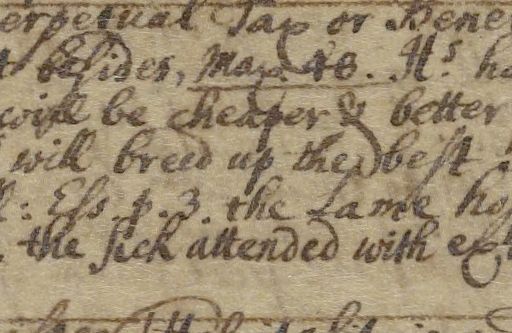 erpetual Tax or Bene
besides, Max. 48. Hs. ha
will be cheaper & better
will breed up the best
: Ess. p. 3. the same ho
. the sick attended with ex